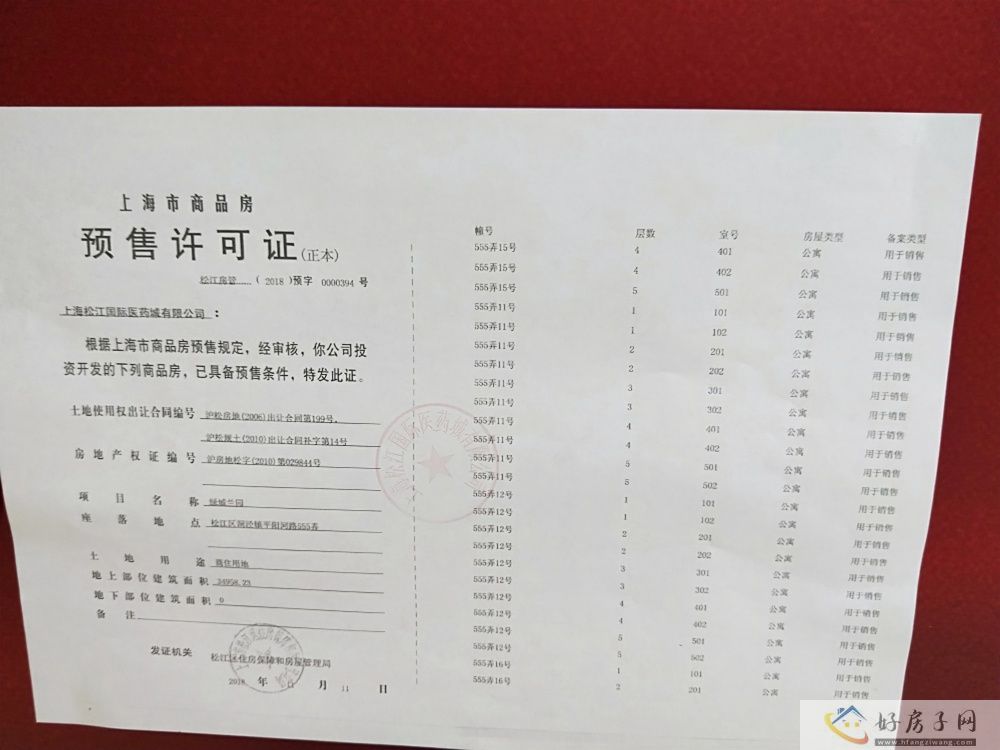 上海市商品房
预售许可证(正本)
松江房管 ( 2018 )预字 0000394 号
上海松江国际医药城有限公司：
根据上海市商品房预售规定，经审核，你公司投
资开发的下列商品房，已具备预售条件，特发此证。
土地使用权出让合同编号 沪松房地(2006)出让合同第199号,
沪松规土(2010)出让合同补字第14号
房地产权证编号 沪房地松字(2010)第029844号
项目名称 绿城兰园
座落地点 松江区洞泾镇平阳河路555弄
土地用途 商住用地
地上部位建筑面积 34958.23
地下部位建筑面积 0
备注
发证机关 松江区住房保障和房屋管理局
2018 年 月 11 日
幢号 层数 室号 房屋类型 备案类型
555弄15号 4 401 公寓 用于销售
555弄15号 4 402 公寓 用于销售
555弄15号 5 501 公寓 用于销售
555弄11号 1 101 公寓 用于销售
555弄11号 1 102 公寓 用于销售
555弄11号 2 201 公寓 用于销售
555弄11号 2 202 公寓 用于销售
555弄11号 3 301 公寓 用于销售
555弄11号 3 302 公寓 用于销售
555弄11号 4 401 公寓 用于销售
555弄11号 4 402 公寓 用于销售
555弄11号 5 501 公寓 用于销售
555弄11号 5 502 公寓 用于销售
555弄12号 1 101 公寓 用于销售
555弄12号 1 102 公寓 用于销售
555弄12号 2 201 公寓 用于销售
555弄12号 2 202 公寓 用于销售
555弄12号 3 301 公寓 用于销售
555弄12号 3 302 公寓 用于销售
555弄12号 4 401 公寓 用于销售
555弄12号 4 402 公寓 用于销售
555弄12号 5 501 公寓 用于销售
555弄12号 5 502 公寓 用于销售
555弄16号 1 101 公寓 用于销售
555弄16号 2 201 公寓 用于销售
好房子网
www.hfangziwang.com